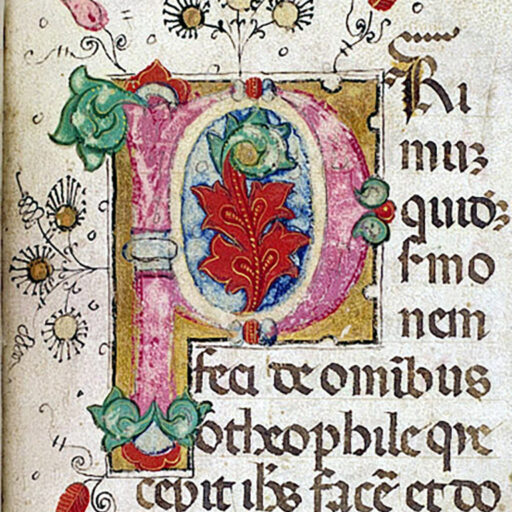 PRi
muʒ
quidʒ
ſmo
nem
feci de omībus
o theophile qͥe
cepit ih̄s facē et do